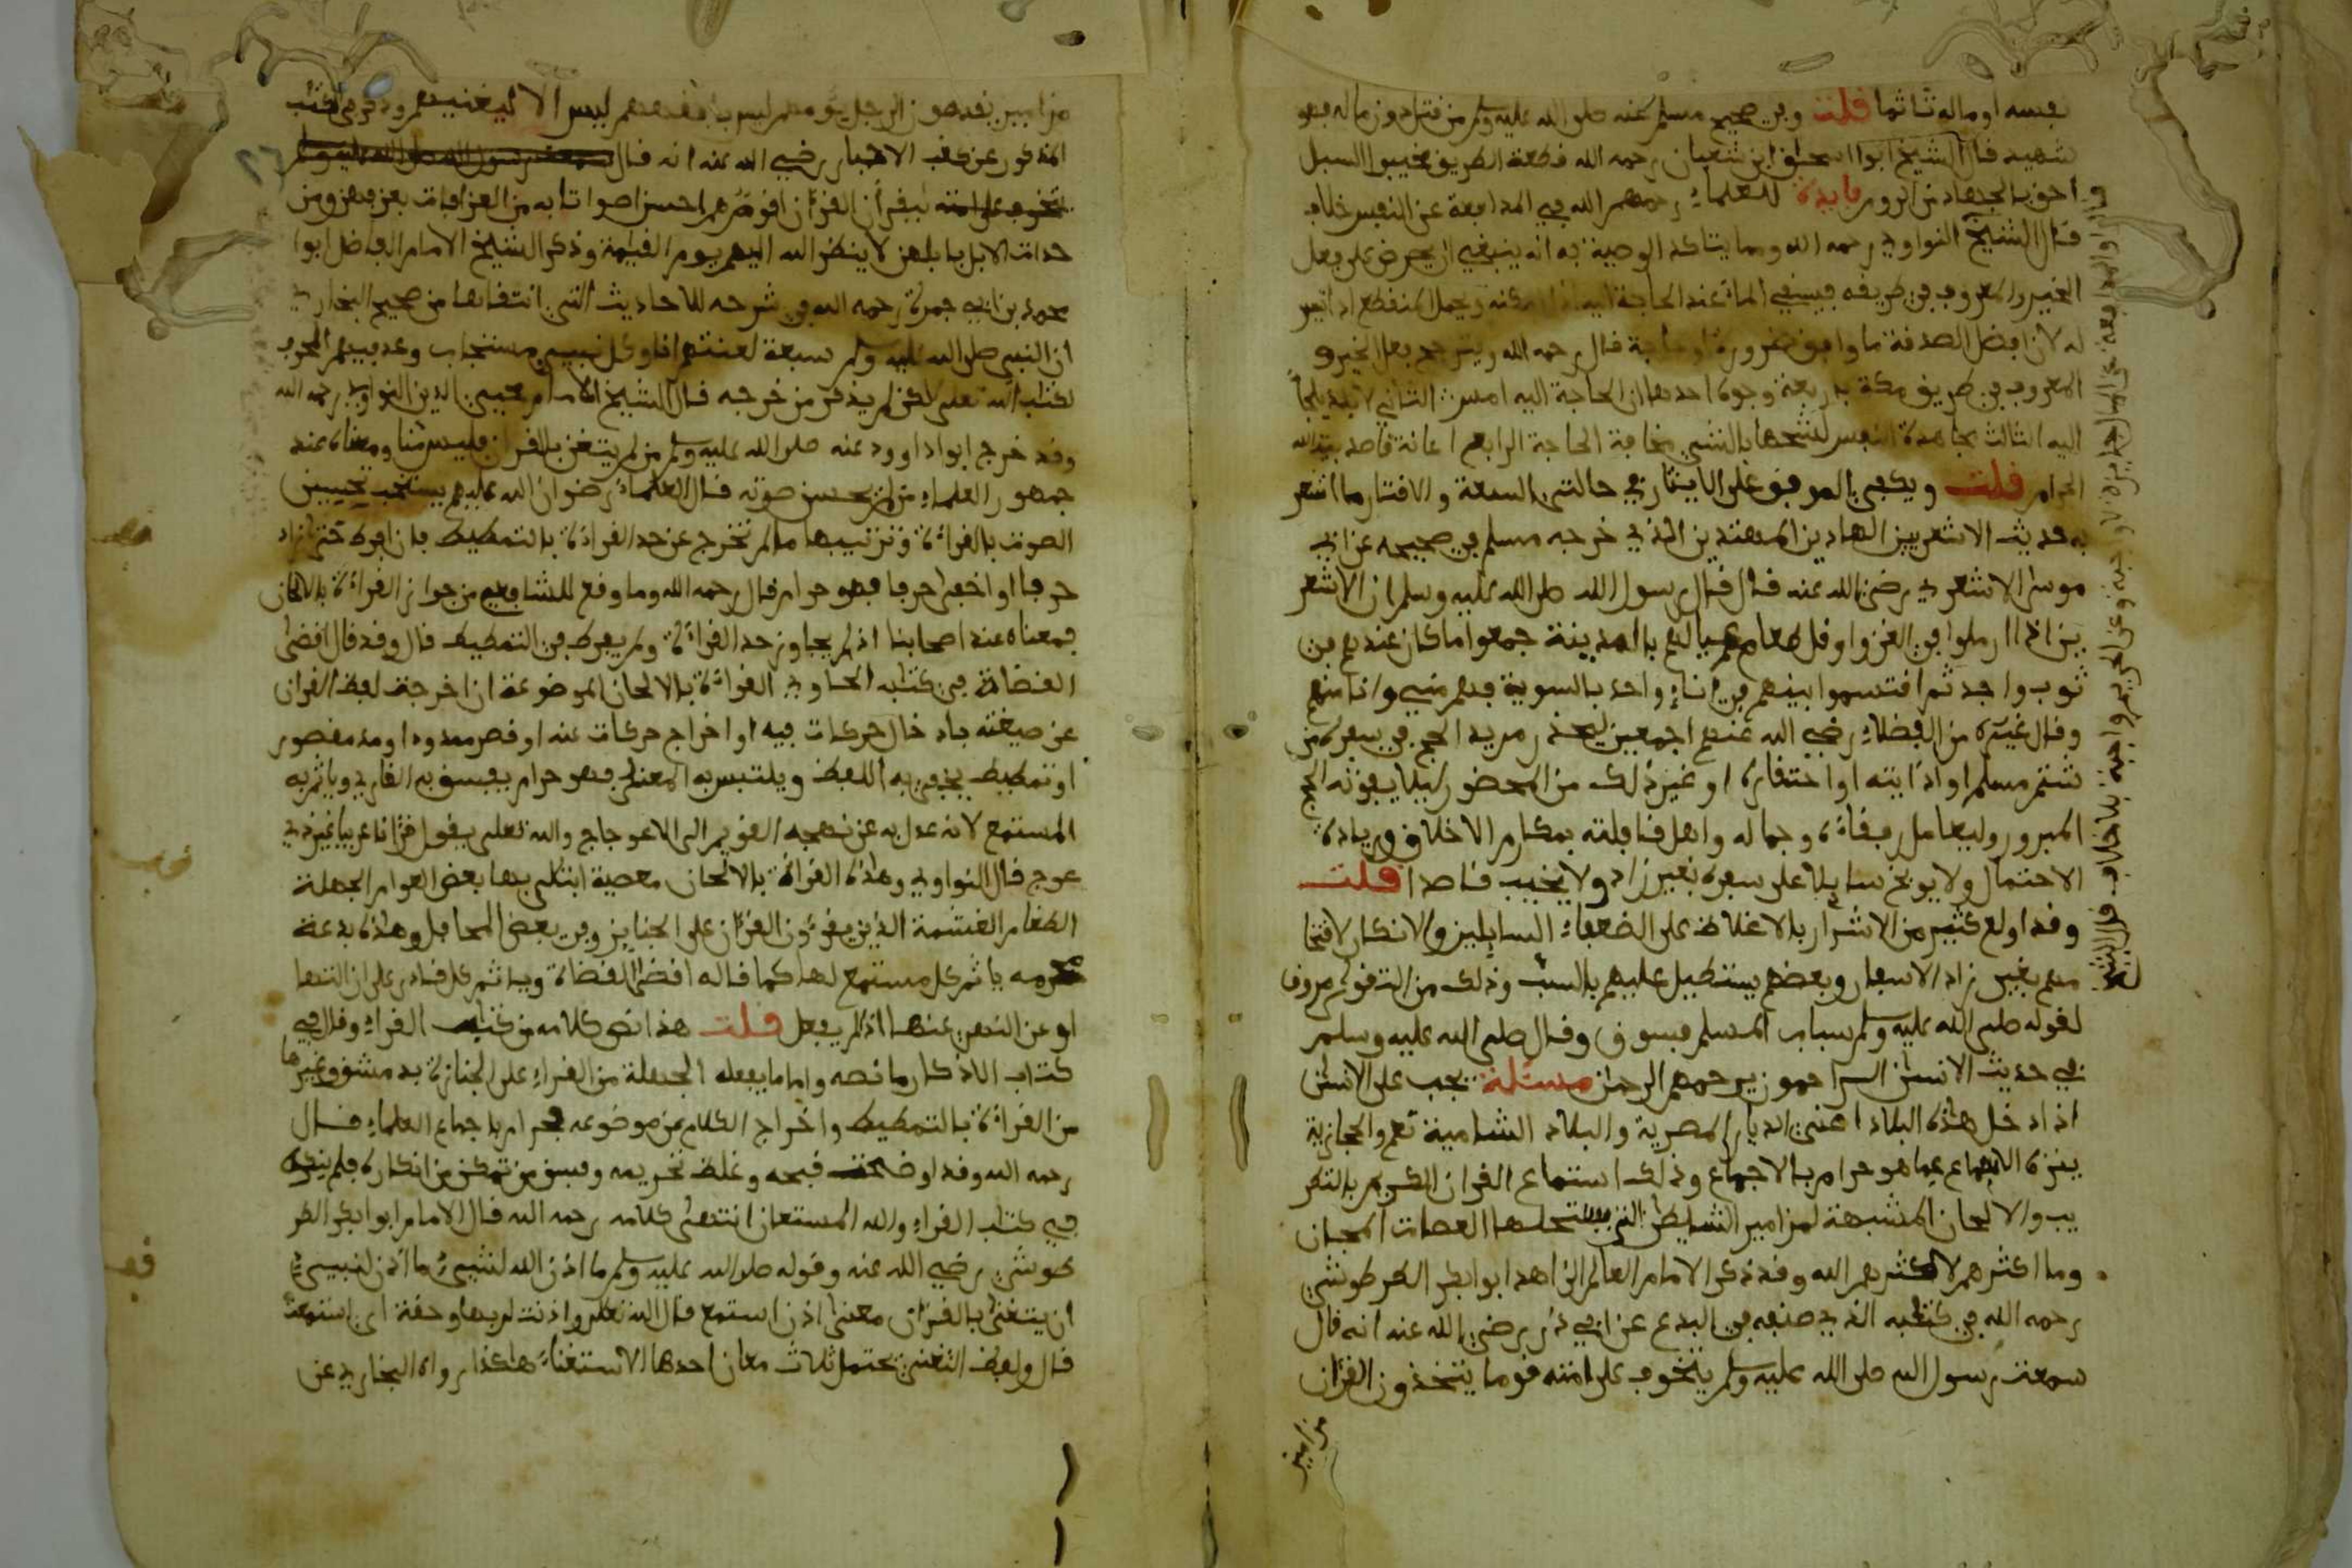 نفسه او ماله ثاثما قلت وفي صحيح مسلم عنه صلى الله عليه وسلم من قتل دون ماله فهو
شهيد قال الشيخ ابوا اسحاق ابن شعبان رحمه الله قطعة الطريق مخيبوا السبل
احق بالجهاد من الروم فايدة للعلماء رحمهم الله في المدافعة عن النفس خلاف
قال الشيخ النواوي رحمه الله ومما يتاكد الوصية به انه ينبغي ان يحرص على فعل
الخير والمعروف في طريقه فيسقي الماء عند الحاجة اليه اذا امكنه ويحمل المنقطع اذا تيسر
له لان افضل الصدقة ما وافق ضرورة او حاجة قال رحمه الله ويترجح فعل الخير و
المعروف في طريق مكة باربعة وجوه احدها ان الحاجة اليه امس الثاني لا
اليه الثالث مجاهدة النفس لشحها بالشيء مخافة الحاجة الرابع اعانة قاصد بيت الله
الحرام قلت ويكفي الموفق على الايثار في حالتي السعة والاقتار ما اشعر
به حديث الاشعريين الهادين المهتدين الذي خرجه مسلم في صحيحه عن ابي
موسى الاشعري رضي الله عنه قال قال رسول الله صلى الله عليه وسلم ان الاشعر
يين اذا ارملوا في الغزو او قل طعام عيالهم بالمدينة جمعوا ما كان عندهم في
ثوب واحد ثم اقتسموا بينهم في اناء واحد بالسوية فهم مني وانا منهم
وقال غيره من الفضلاء رضي الله عنهم اجمعين ليحذر مريد الحج في سفره من
شتم مسلم او اذايته او احتقاره او غير ذلك من المحضور ليلا يفوته الحج
المبرور وليعامل رفقاءه وجماله واهل قافلته بمكارم الاخلاق وزيادة
الاحتمال ولا يوبخ سايلا على سفره بغير زاد ولا يخيب قاصدا قلت
وقد اولع كثير من الاشرار بالاغلاظ على الضعفاء السايلين والانكار لاقتحا
مهم بغير زاد الاسفار وبعضهم يستطيل عليهم بالسب وذلك من التقوى مروق
لقوله صلى الله عليه وسلم سباب المسلم فسوق وقال صلى الله عليه وسلم
في حديث الانسان الراحمون يرحمهم الرحمان مسئلة يجب على الانسان
اذا دخل هذه البلاد اعني الديار المصرية والبلاد الشامية نعم والحجازية
ينزه الاسماع عما هو حرام بالاجماع وذلك استماع القران الكريم بالتطر
يب والالحان المشبهة لمزامير الشيطان التي يستحلها العصات المجان
وما اكثرهم لا كثرهم الله وقد ذكر الامام العالم الزاهد ابوا بكر الطرطوشي
رحمه الله في كتابه الذي صنفه في البدع عن ابي ذر رضي الله عنه انه قال
سمعت رسول الله صلى الله عليه وسلم يتخوف على امته قوما يتخذون القران
مزامير
مزامير يقدمون الرجل يؤمهم ليس بافقههم ليس الا ليغنيهم وذكر في الكتب
المذكور عن كعب الاحبار رضي الله عنه انه قال سمعت رسول الله صلى الله عليه وسلم
يتخوف على امته ليقرأن القرءان اقوام هم احسن اصواتا به من العزافات بعزفهن ومن
حدات الابل بابلهن لا ينظر الله اليهم يوم القيمة وذكر الشيخ الامام الفاضل ابوا
محمد بن ابي جمرة رحمه الله في شرحه للاحاديث التي انتقاها من صحيح البخاري
ان النبي صلى الله عليه وسلم سبعة لعنتهم انا وكل نبي مستجاب وعد فيهم المحرف
لكتاب الله تعلى لاكن لم يذكر من خرجه قال الشيخ الامام محيي الدين النواوي رحمه الله
وقد خرج ابوا داوود عنه صلى الله عليه وسلم من لم يتغن بالقران فليس منا ومعناه عند
جمهور العلماء من لم يحسن صوته قال العلماء رضوان الله عليهم يستحب تحسين
الصوت بالقراءة وترتيبها ما لم تخرج عن حد القراءة بالتمطيط فان افرط حتى زاد
حرفا او اخفى حرفا فهو حرام قال رحمه الله وما وقع للشافعي من جواز القراءة بالالحان
فمعناه عند اصحابنا اذا لم يجاوز حد القراءة ولم يفرط في التمطيط قال وقد قال اقضى
القضاة في كتابه الحاوي القراءة بالالحان الموضوعة ان اخرجت لفظ القران
عن صيغته بادخال حركات فيه او اخراج حركات عنه او قصر ممدود او مد مقصور
او تمطيط يخفى به اللفظ ويلتبس به المعنى فهو حرام يفسق به القاري وياثم به
المستمع لانه عدل به عن نهجه القويم الى الاعوجاج والله تعلى يقول قرءانا عربيا غير ذي
عوج قال النواوي وهذه القراءة بالالحان معصية ابتلى بها بعض العوام الجهلة
الطغام الغشمة الذين يقرءون القرءان على الجنايز وفي بعض المحافل وهذه بدعة
محرمة ياثم كل مستمع لها كما قاله اقضى القضاة وياثم كل قادر على ازالتها
او عن النهي عنها اذا لم يفعل قلت هذا نص كلامه من كتاب القراء وقال في
كتاب الاذكار ما نصه واما ما يفعله الجهلة من القراء على الجنازة بدمشق وغيرها
من القراءة بالتمطيط واخراج الكلام عن موضوعه فحرام باجماع العلماء قال
رحمه الله وقد اوضحت قبحه وغلظ تحريمه وفسق من تمكن من انكاره فلم ينكره
في كتاب القراء والله المستعان انتهى كلامه رحمه الله قال الامام ابوا بكر الطر
طوشي رضي الله عنه وقوله صلى الله عليه وسلم ما اذن الله لشيء ما اذن لنبيء
ان يتغنى بالقرءان معنى اذن استمع قال الله تعلى واذنت لربها وحقت اي استمعت
قال ولفظ التغني يحتمل ثلاث معان احدها الاستغناء هاكذا رواه البخاري عن